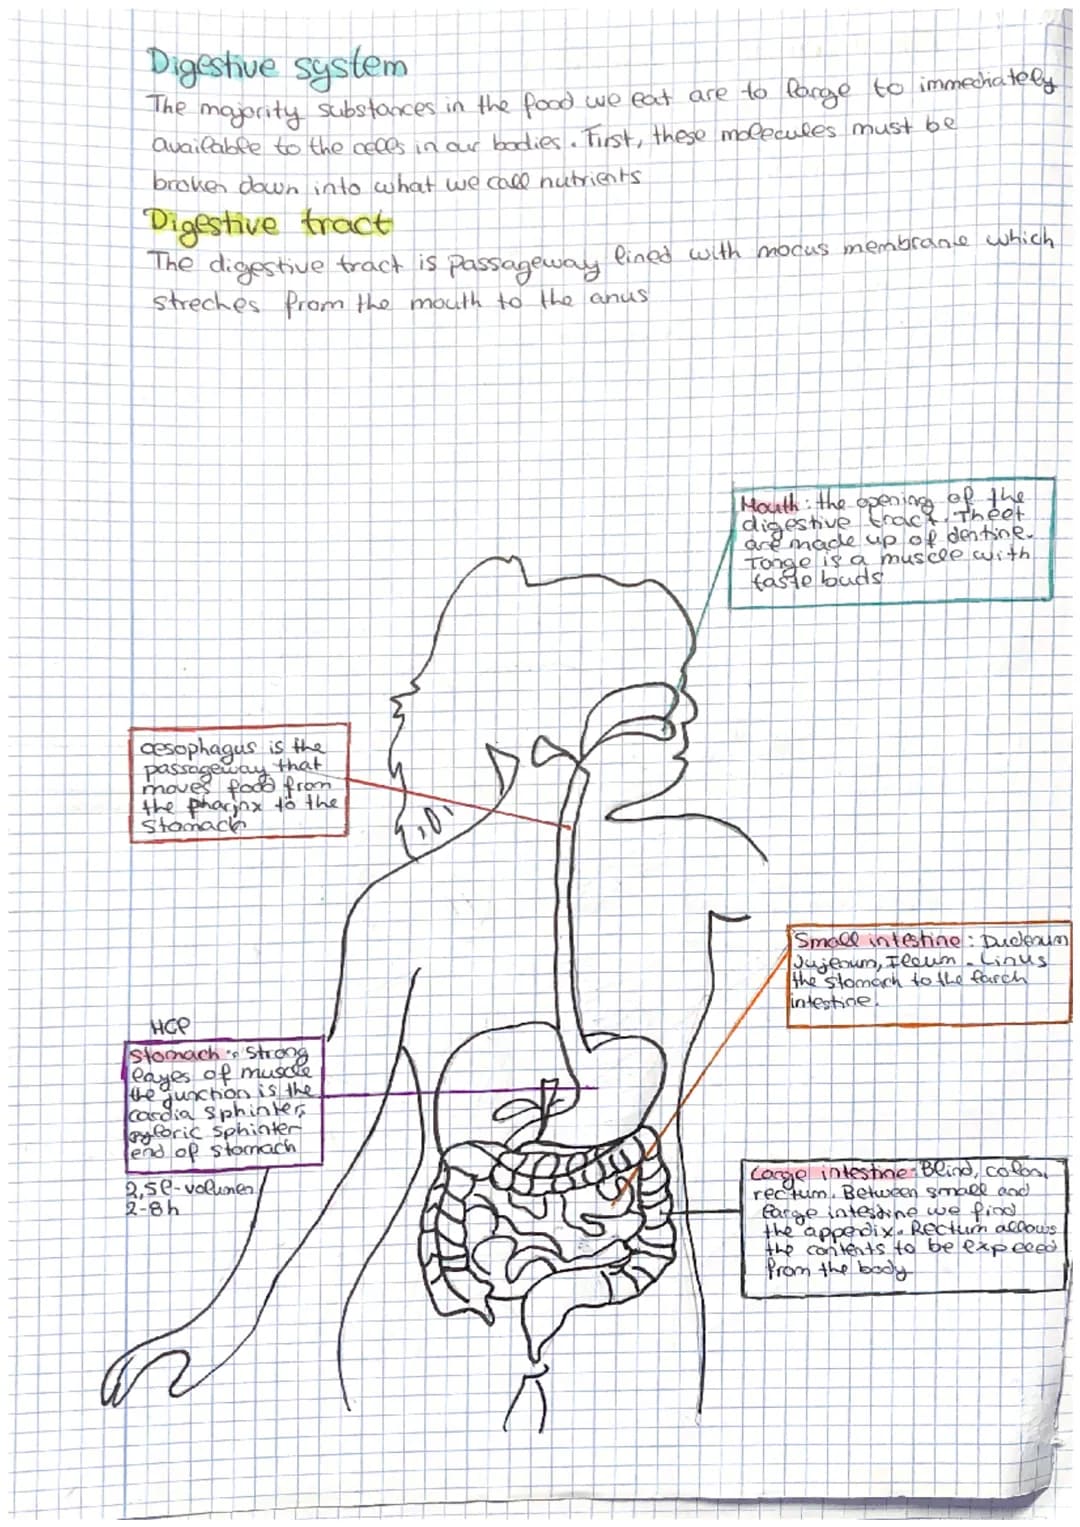 Digestive system
The majority substances in the food we eat are to large to immediately
available to the cells in our bodies. First, these molecules must be
broken down into what we call nutrients
Digestive tract
The digestive tract is passageway lined with mocus membrane which
streches from the mouth to the anus
Mouth: the opening of the
digestive tract. Theet
are made up of dentine.
Tonge is a muscle with
taste buds
oesophagus is the
passageway that
moves food from
the pharjnx to the
stomach
Small intestine: Dudenum
Jujenum, Ileum. Linus
the stomach to the larch
intestine.
HCP
Stomach: Strong
layes of muscle
the junction is the
cardia sphinter,
pyloric sphinter
end of stomach
2,5l-volumen
2-8h
Large intestine: Blind, colon,
rectum. Between small and
large intestine we find
the appendix. Rectum allows
the contents to be expeced
from the body